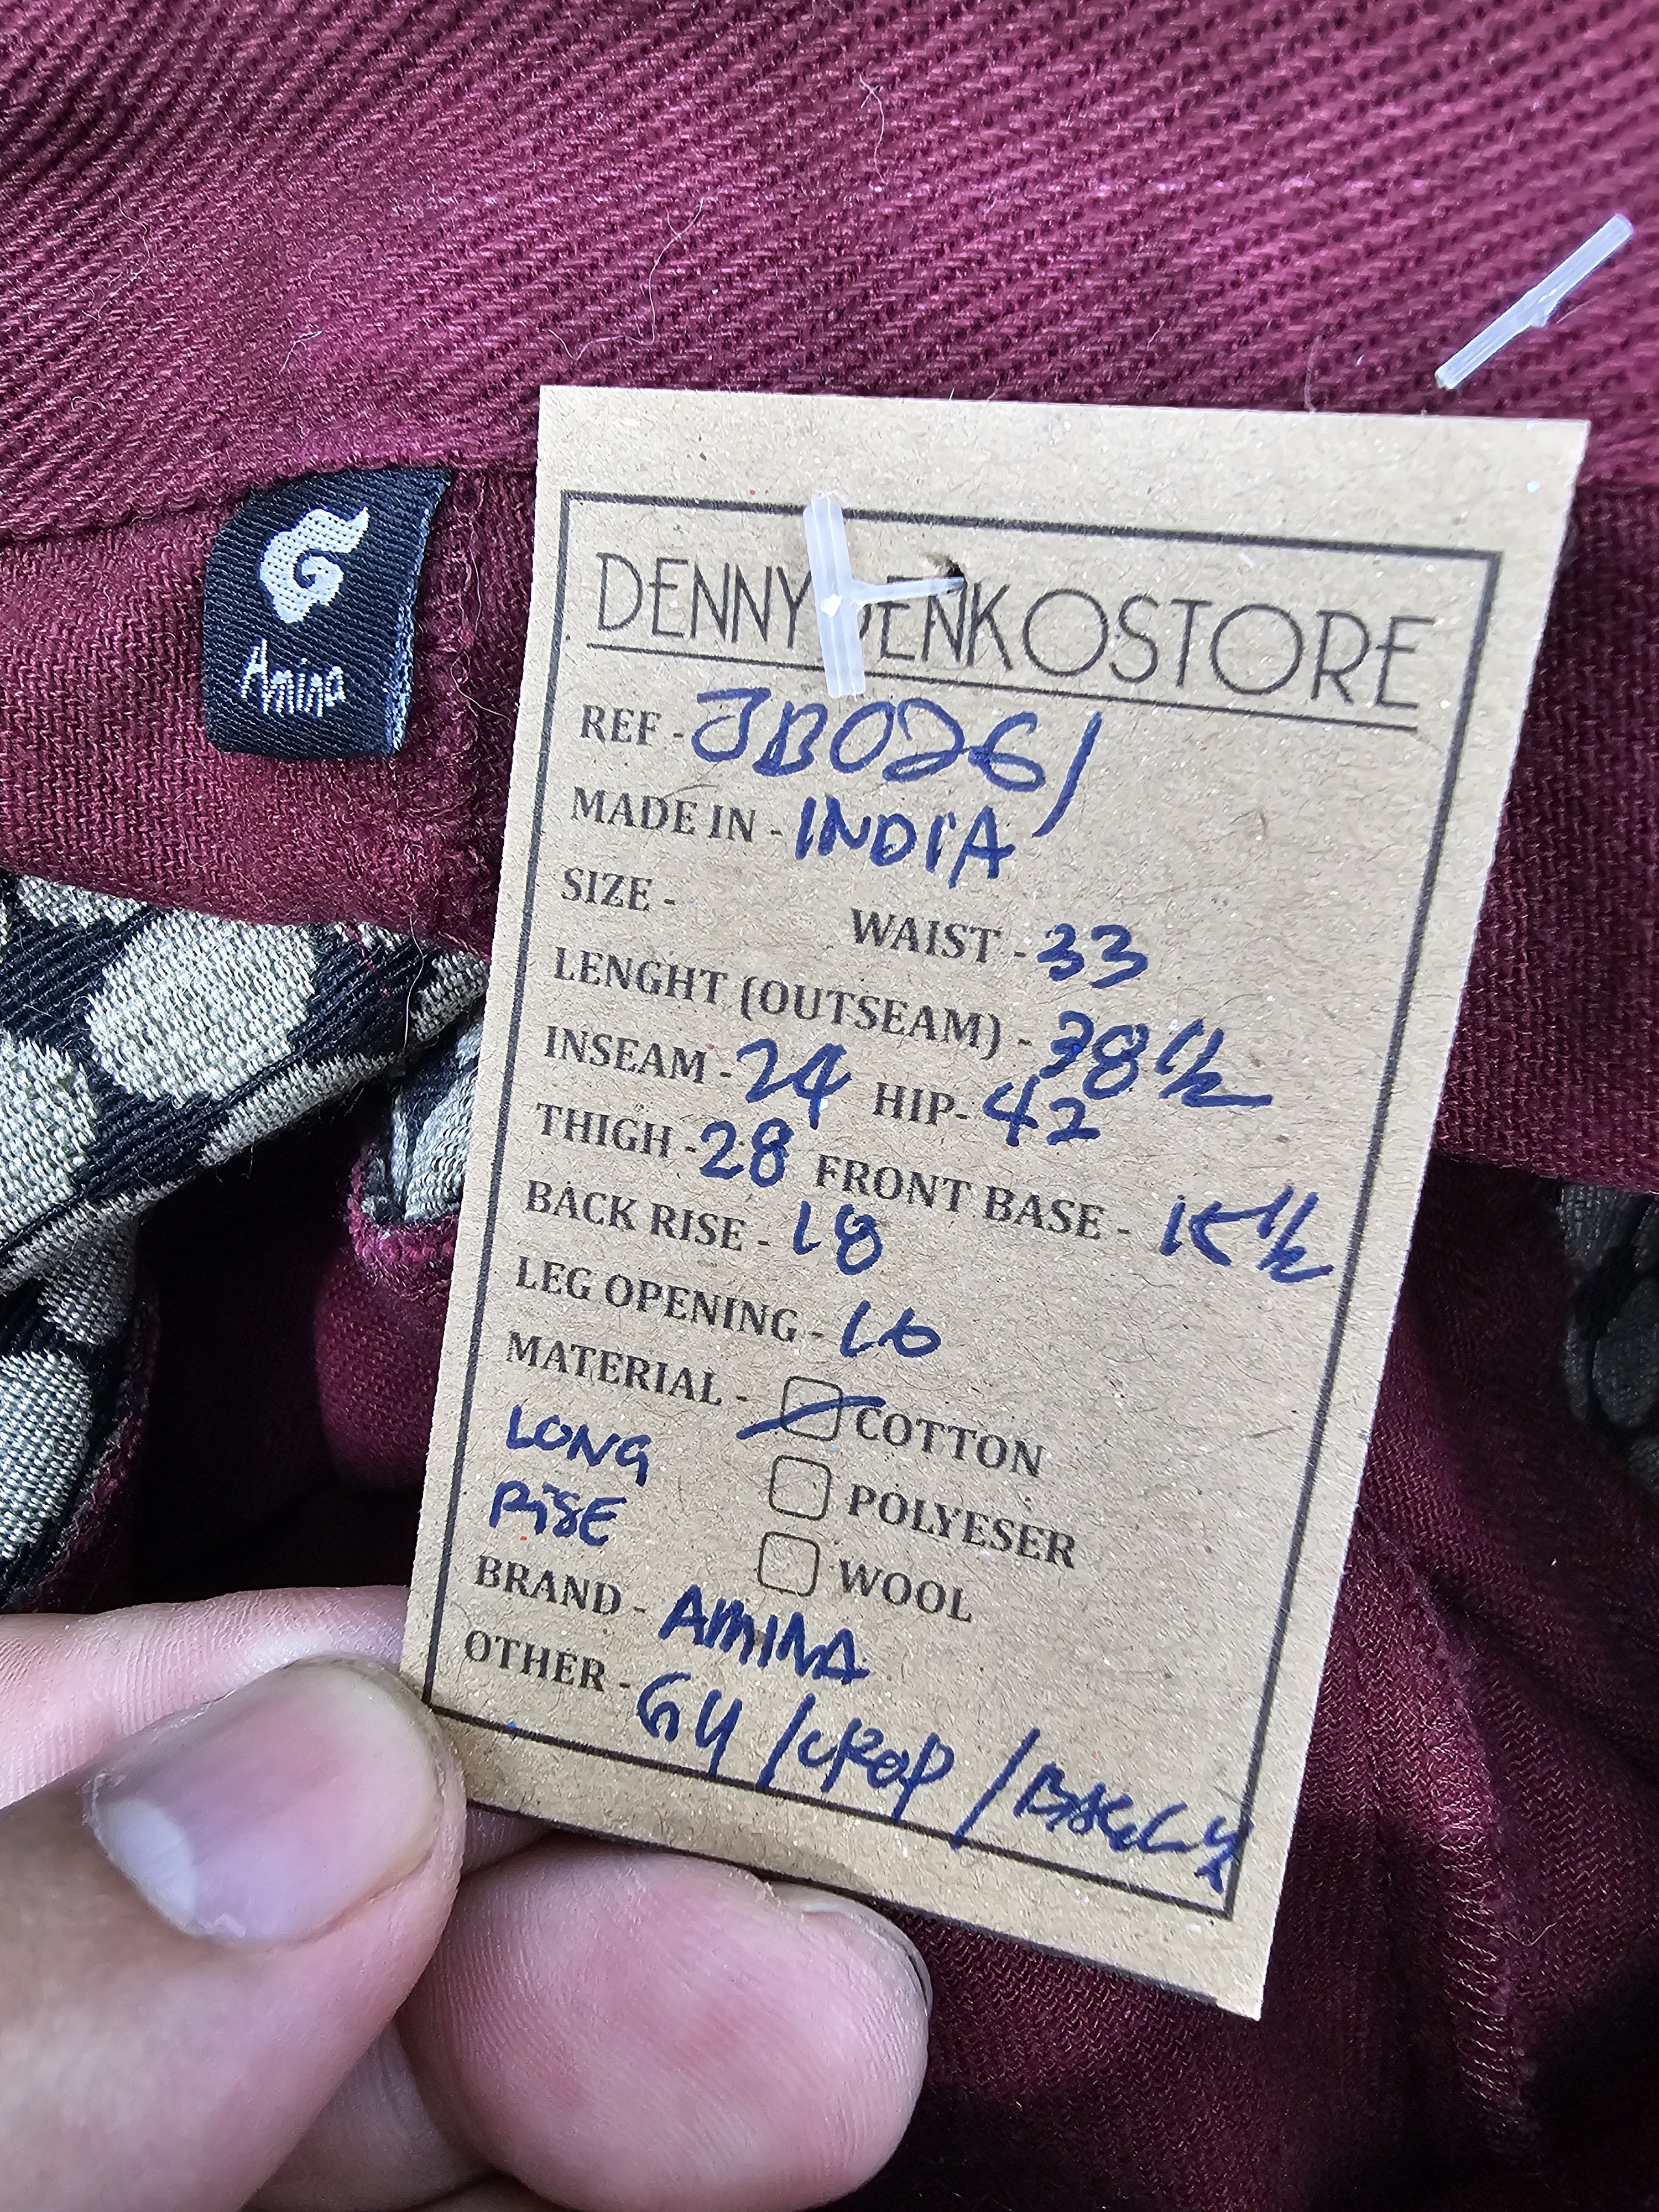 Amina
DENNYDENKOSTORE
REF - JB0261
MADE IN - INDIA
SIZE -
WAIST - 33
LENGHT (OUTSEAM) - 38 1/2
INSEAM - 24 HIP- 42
THIGH - 28 FRONT BASE - 15 1/2
BACK RISE - 18
LEG OPENING - 16
MATERIAL - COTTON
LONG POLYESER
RISE WOOL
BRAND - AMINA
OTHER - GY / CROP / BAGGY